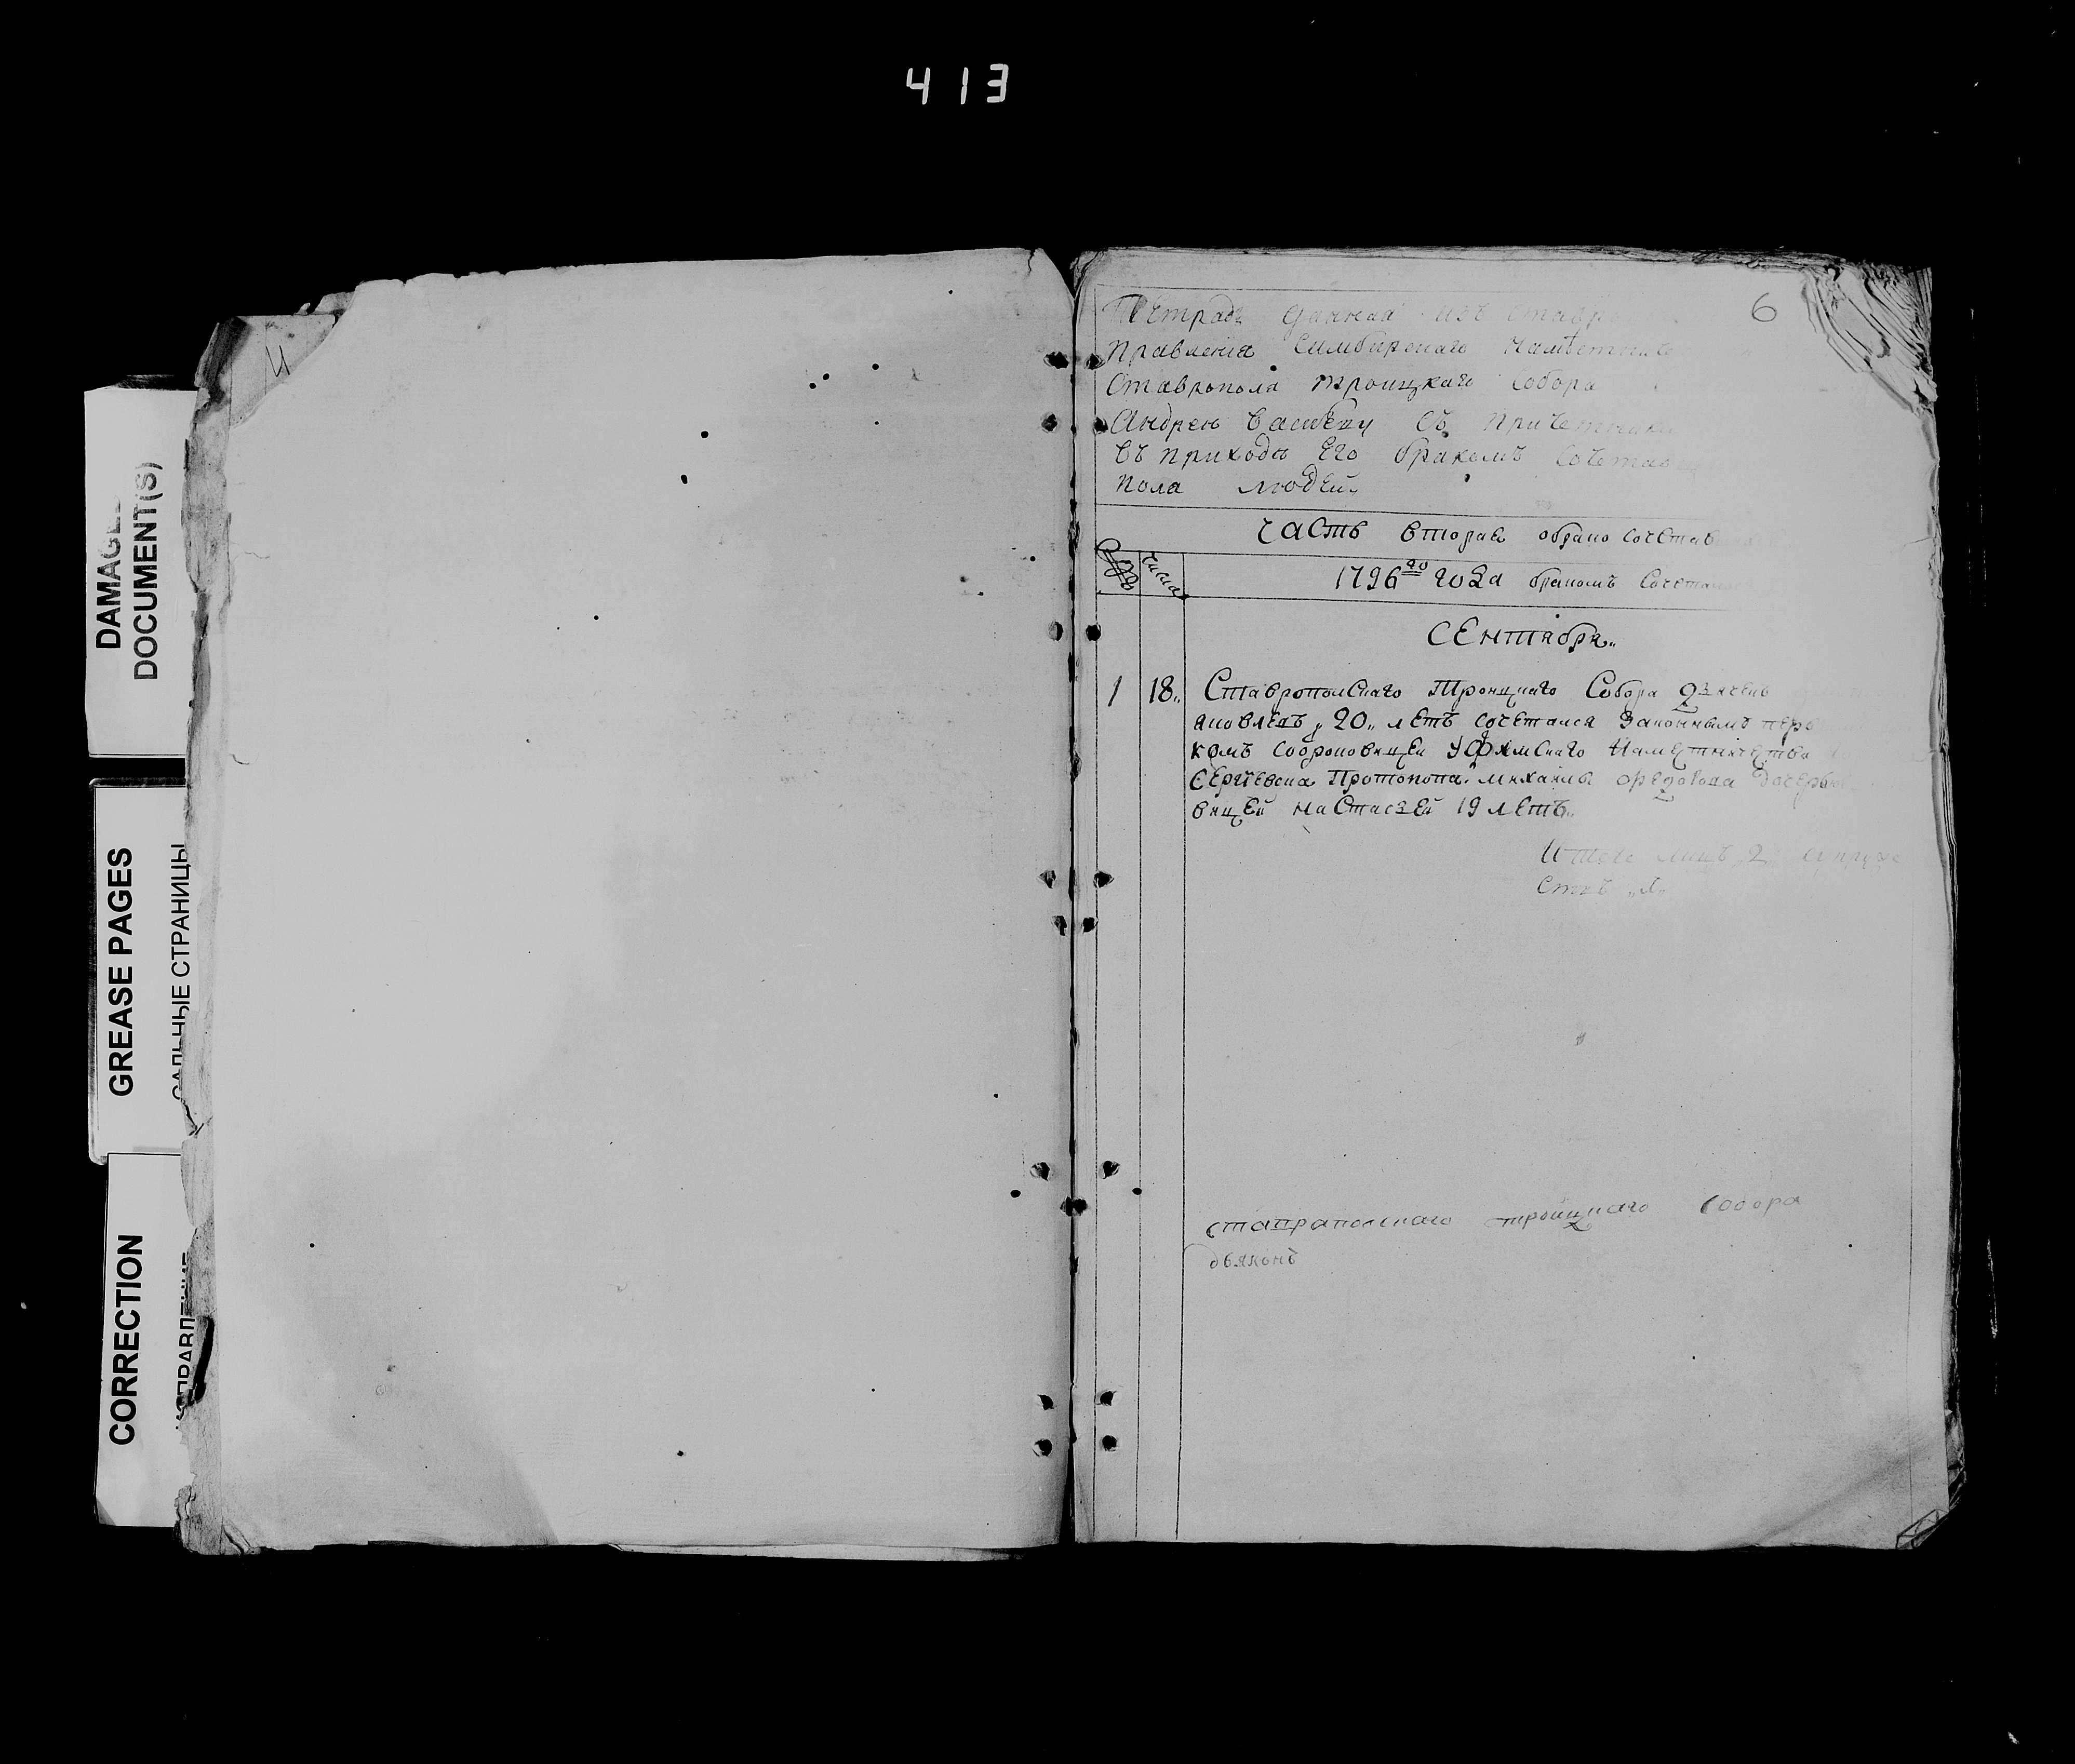 413
DAMAGED
DOCUMENT(S)
GREASE PAGES
САЛЬНЫЕ СТРАНИЦЫ
CORRECTION
6
Тетрадь данная изъ Ставро
правления Симбирскаго намѣстниче
Ставрополя троицкаго Собора
Андрею с причетники
въ приходѣ Его бракомъ Сочетав
пола людей
Часть вторая о брако сочетав
числа
1796го года бракомъ Сочетал
Сентября
1 18 Ставропольскаго Троицкаго Собора дьячекъ
яковлевъ 20 лѣтъ сочетался законнымъ перв
комъ со отроковицей Уфимскаго Намѣстничества
Сергіевска Протопопа михаила дочерью
вицей Настасьей 19 лѣтъ
Итого лицъ 2 супруже
ствъ 1
ставрапольскаго троицкаго Собора
дьяконъ